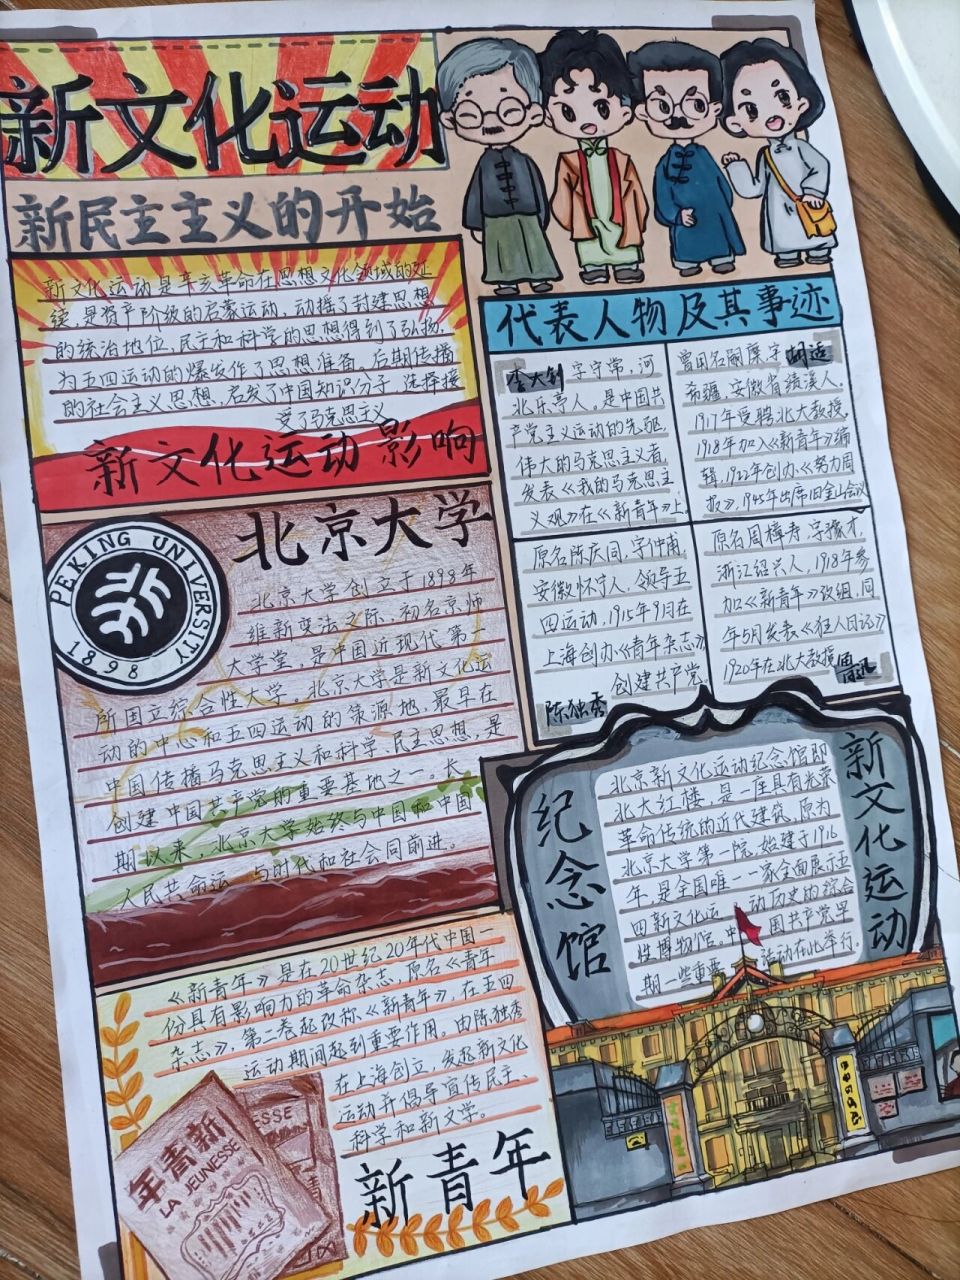 新文化运动
新民主主义的开始
新文化运动是辛亥革命在思想文化领域的延
续,是资产阶级的启蒙运动,动摇了封建思想
的统治地位,民主和科学的思想得到了弘扬,
为五四运动的爆发作了思想准备。后期传播
的社会主义思想,启发了中国知识分子,选择接
受了马克思主义
新文化运动影响
代表人物及其事迹
李大钊字守常,河
北乐亭人。是中国共
产党主义运动的先驱,
伟大的马克思主义者,
发表《我的马克思主
义观》在《新青年》上
曾用名嗣穈字 胡适
希疆,安徽省绩溪人。
1917年受聘北大教授,
1918年加入《新青年》编
辑,1922年创办《努力周
报》,1945年出席旧金山会议
原名陈庆同,字仲甫,
安徽怀宁人,领导五
四运动,1915年9月在
上海创办《青年杂志》
创建共产党。
陈独秀
原名周樟寿,字豫才,
浙江绍兴人,1918年参
加《新青年》改组,同
年5月发表《狂人日记》
1920年在北大教授 鲁迅
北京大学
PEKING UNIVERSITY
1898
北京大学创立于1898年
维新变法之际,初名京师
大学堂,是中国近现代第一
所国立综合性大学。北京大学是新文化运
动的中心和五四运动的策源地,最早在
中国传播马克思主义和科学、民主思想,是
创建中国共产党的重要基地之一。长
期以来,北京大学始终与中国和中国
人民共命运,与时代和社会同前进。
新文化运动
纪念馆
北京新文化运动纪念馆即
北大红楼,是一座具有光荣
革命传统的近代建筑,原为
北京大学第一院,始建于1916
年,是全国唯一一家全面展示五
四新文化运动历史的综合
性博物馆。中国共产党早
期一些重要活动在此举行。
《新青年》是在20世纪20年代中国一
份具有影响力的革命杂志,原名《青年
杂志》,第二卷起改称《新青年》,在五四
运动期间起到重要作用。由陈独秀
在上海创立,发起新文化
运动并倡导宣传民主、
科学和新文学。
新青年
新青年
LA JEUNESSE